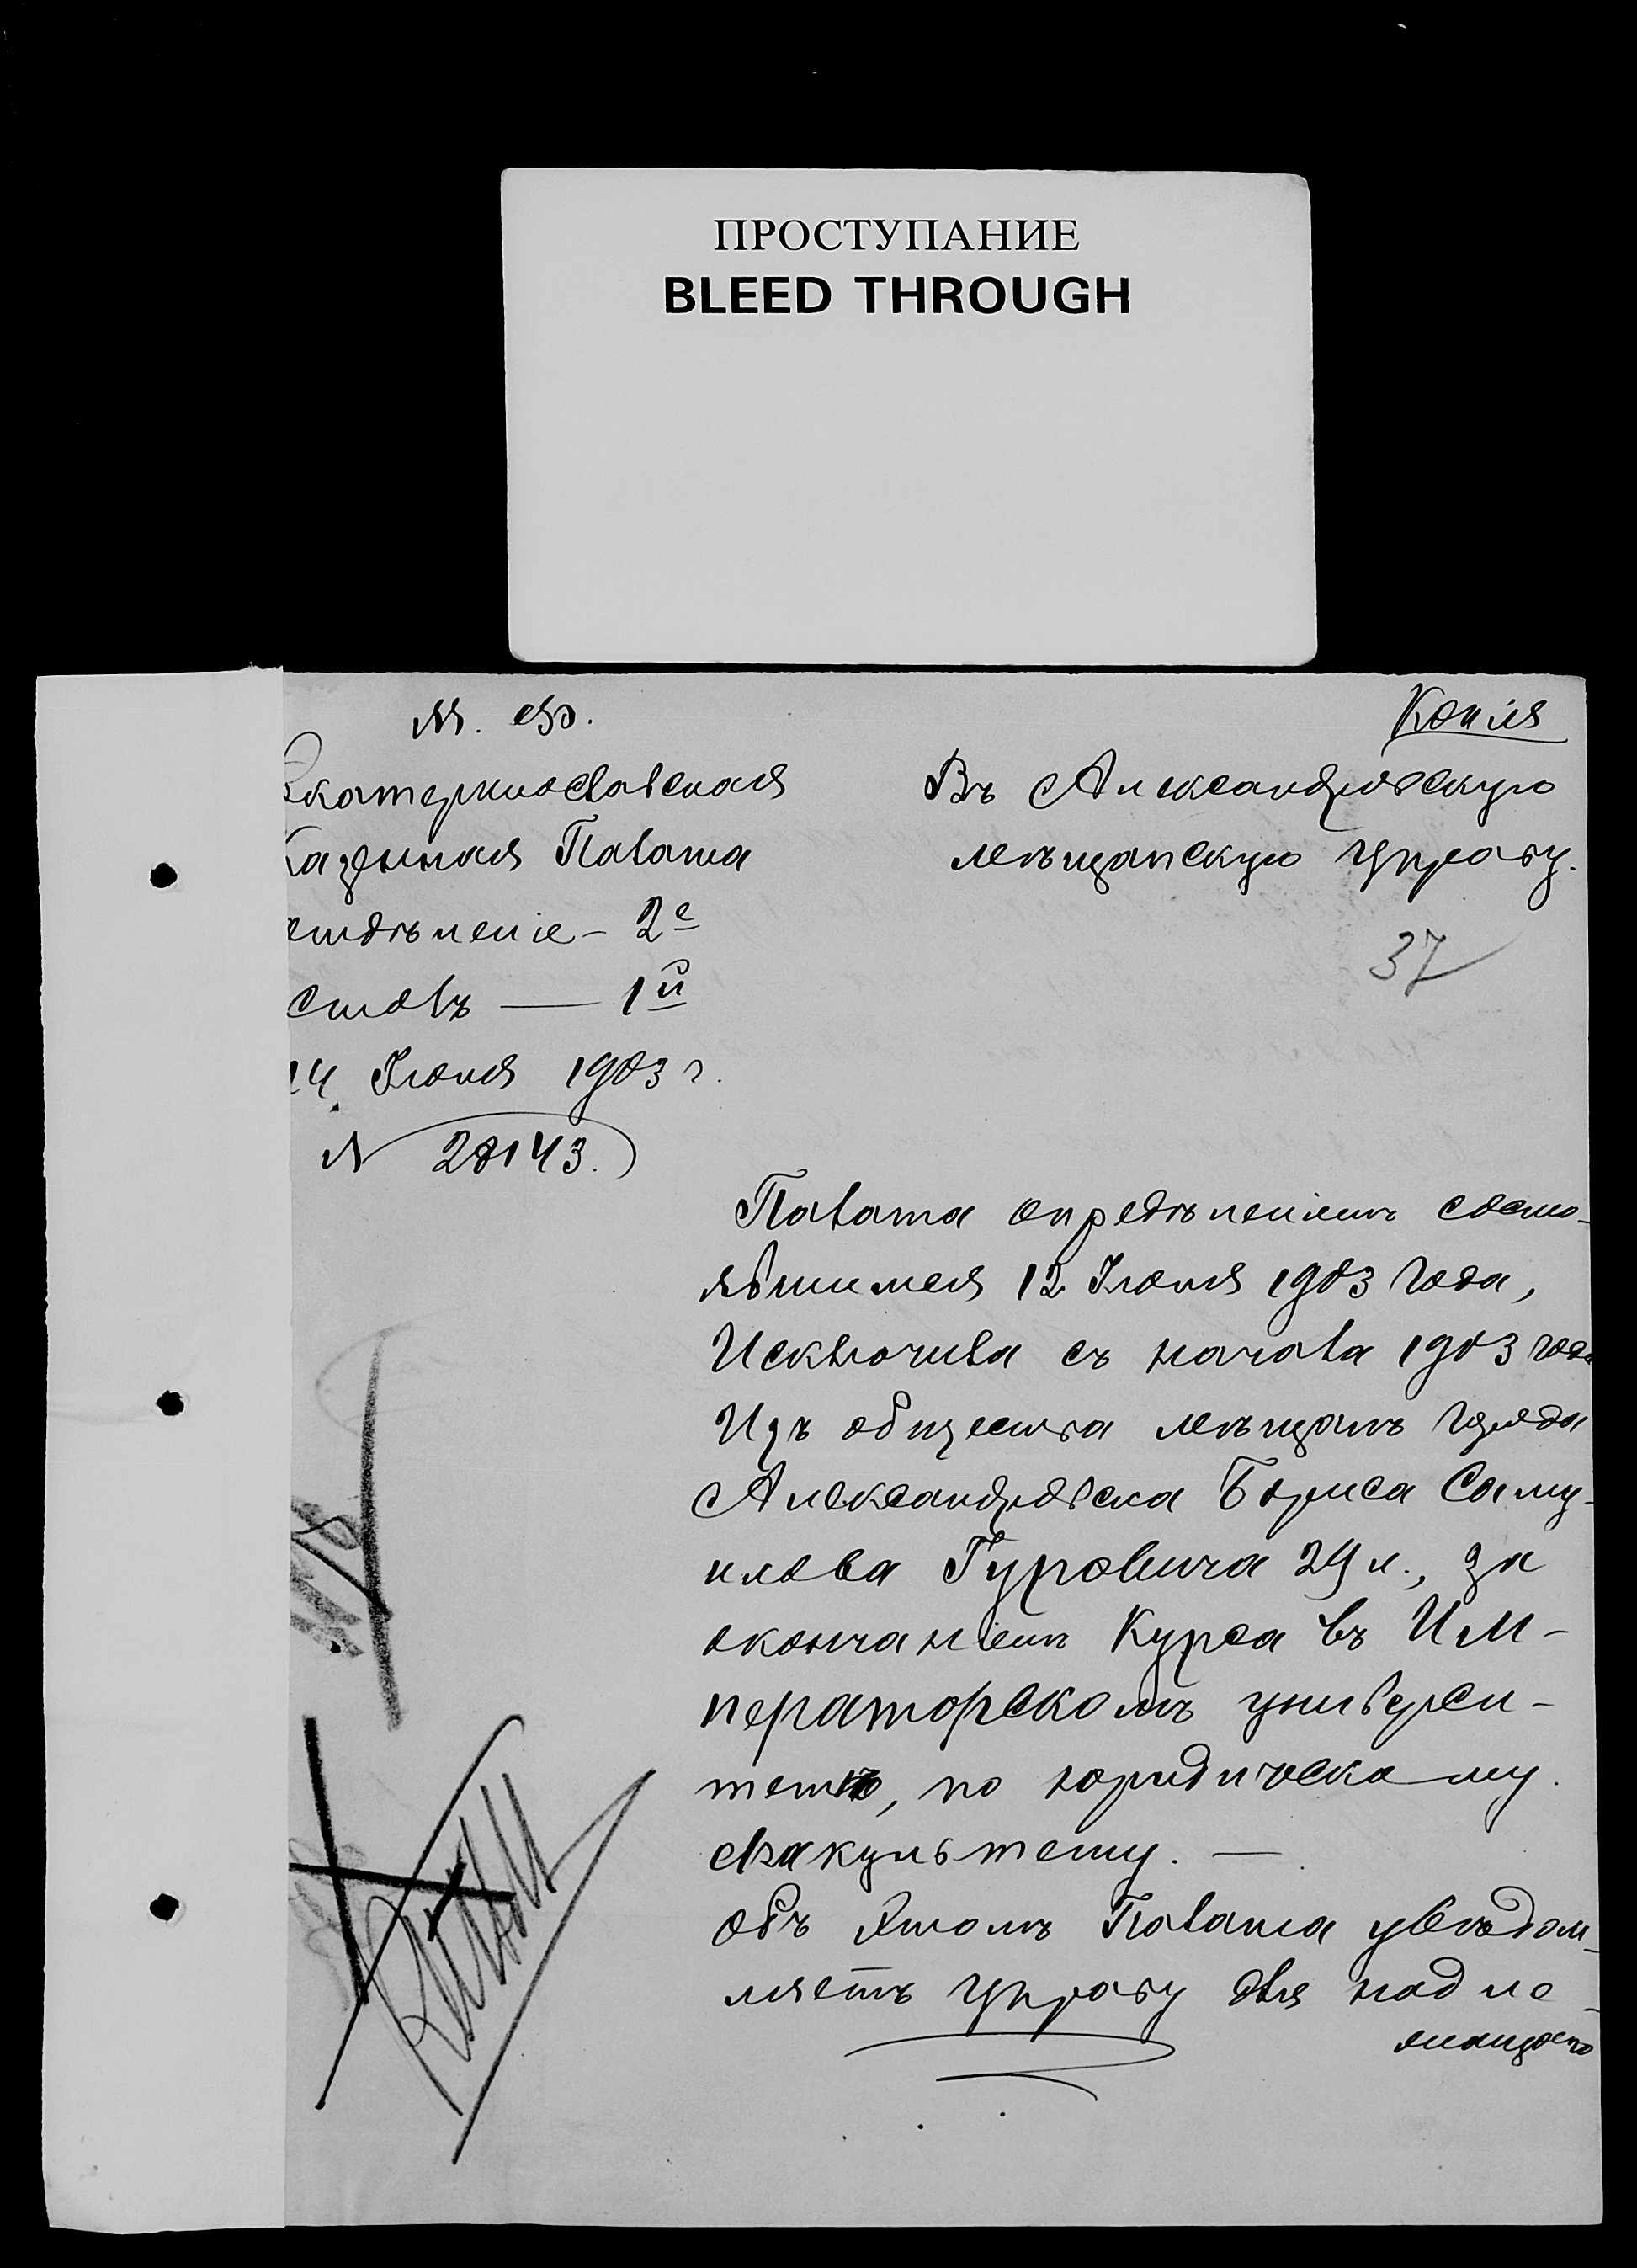 ПРОСТУПАНИЕ
BLEED THROUGH
М. Ф.
Екатеринославская
Казенная Палата
отдѣленіе – 2е
столъ — 1й
14 Іюня 1903 г.
N 28143.
Копія
Въ Александровскую
мѣщанскую управу.
37
Палата опредѣленіемъ состо-
явшимся 12 Іюня 1903 года,
Исключила съ начала 1903 года
Изъ общества мѣщанъ города
Александровска Бориса Саму-
илова Гуровича 29 л., за
окончаніемъ Курса въ Им-
ператорскомъ универси-
тетѣ, по юридическому
факультету. —
объ этомъ Палата увѣдом-
ляетъ управу для надле-
жащаго